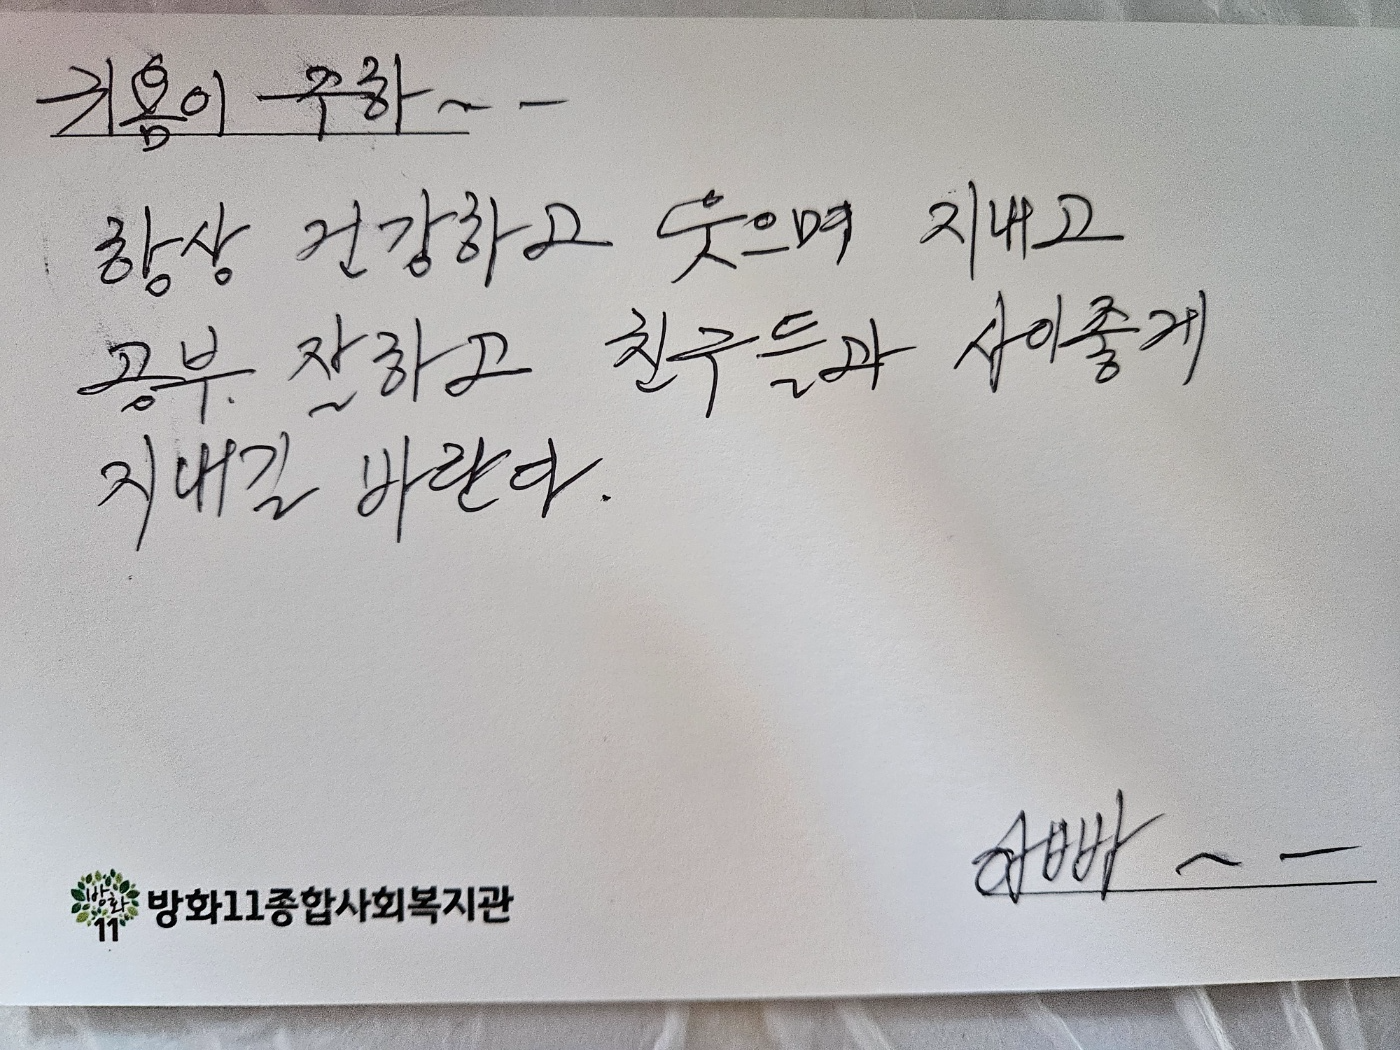 귀욤이 주하~ -
항상 건강하고 웃으며 지내고
공부 잘하고 친구들과 사이좋게
지내길 바란다.
아빠 ~ -
방화
11
방화11종합사회복지관